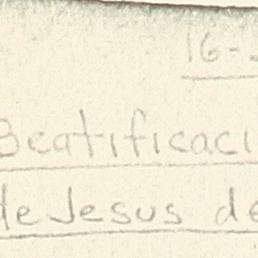 16-
Beatificaci
de Jesus de